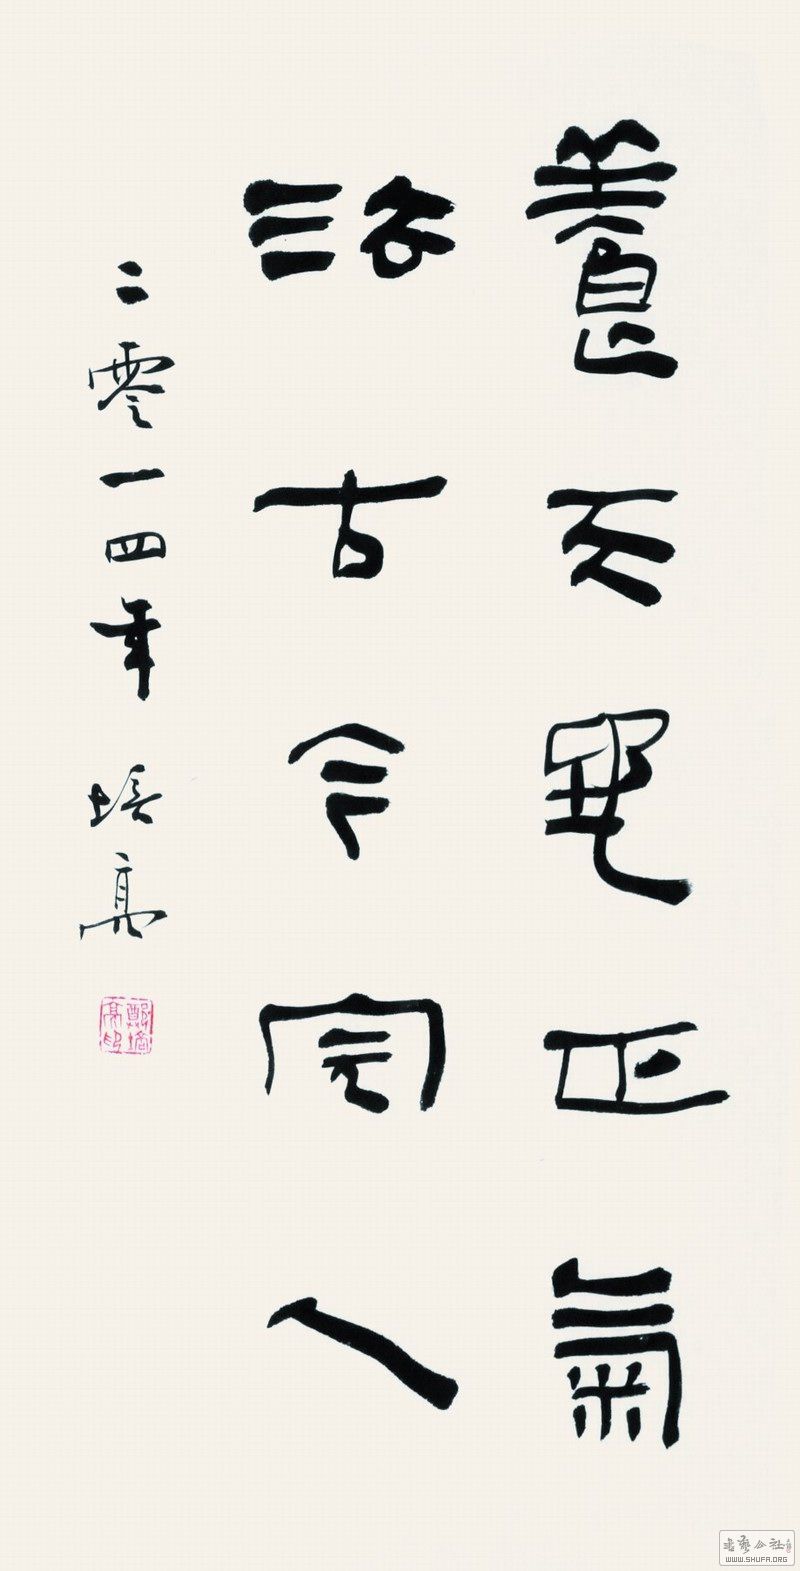 養天地正氣
法古今完人
二零一四年 培亮
鄭培
亮印
WWW.SHUFA.ORG